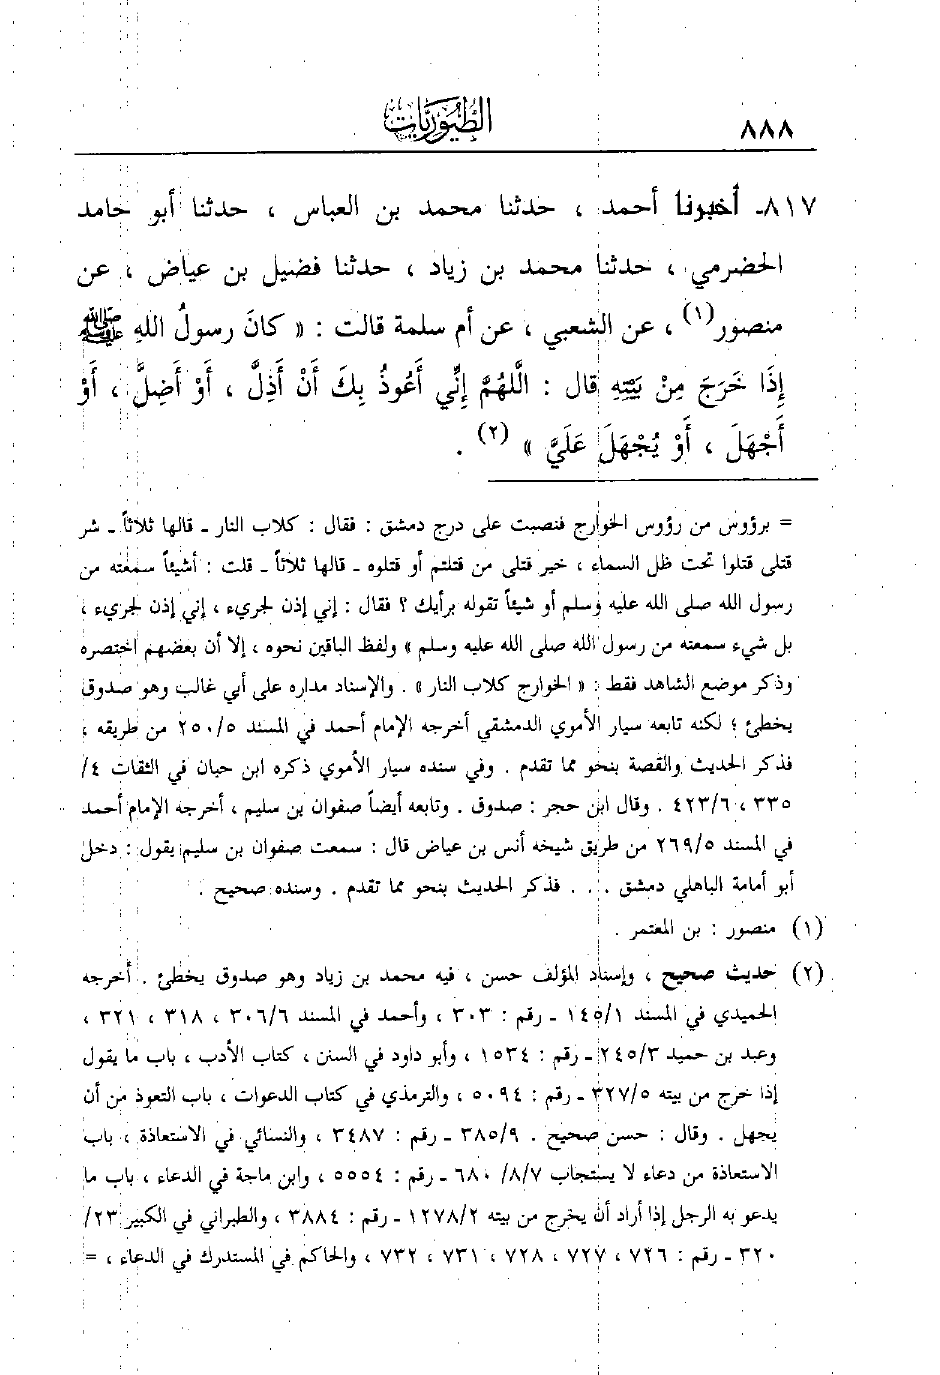 ٨٨٨
الطيوريات
٨١٧ـ أخبرنا أحمد ، حدثنا محمد بن العباس ، حدثنا أبو حامد
الحضرمي ، حدثنا محمد بن زياد ، حدثنا فضيل بن عياض ، عن
منصور(١) ، عن الشعبي ، عن أم سلمة قالت : « كانَ رسولُ اللهِ ﷺ
إِذَا خَرَجَ مِنْ بَيْتِهِ قال : اللَّهُمَّ إِنِّي أَعُوذُ بِكَ أَنْ أَذِلَّ ، أَوْ أَضِلَّ ، أَوْ
أَجْهَلَ ، أَوْ يُجْهَلَ عَلَيَّ » (٢) .
= برؤوس من رؤوس الخوارج فنصبت على درج دمشق : فقال : كلاب النار ـ قالها ثلاثاً ـ شر
قتلى قتلوا تحت ظل السماء ، خير قتلى من قتلتم أو قتلوه ـ قالها ثلاثاً ـ قلت : أشيئاً سمعته من
رسول الله صلى الله عليه وسلم أو شيئاً تقوله برأيك ؟ فقال : إني إذن لجريء ، إني إذن لجريء ،
بل شيء سمعته من رسول الله صلى الله عليه وسلم » ولفظ الباقين نحوه ، إلا أن بعضهم اختصره
وذكر موضع الشاهد فقط : « الخوارج كلاب النار » . والإسناد مداره على أبي غالب وهو صدوق
يخطئ ؛ لكنه تابعه سيار الأموي الدمشقي أخرجه الإمام أحمد في المسند ٢٥٠/٥ من طريقه ،
فذكر الحديث والقصة بنحو مما تقدم . وفي سنده سيار الأموي ذكره ابن حبان في الثقات ٤/
٣٣٥ ، ٤٢٣/٦ . وقال ابن حجر : صدوق . وتابعه أيضاً صفوان بن سليم ، أخرجه الإمام أحمد
في المسند ٢٦٩/٥ من طريق شيخه أنس بن عياض قال : سمعت صفوان بن سليم يقول : دخل
أبو أمامة الباهلي دمشق . . . فذكر الحديث بنحو مما تقدم . وسنده صحيح .
(١) منصور : بن المعتمر .
(٢) حديث صحيح ، وإسناد المؤلف حسن ، فيه محمد بن زياد وهو صدوق يخطئ . أخرجه
الحميدي في المسند ١٤٥/١ ـ رقم : ٣٠٣ ، وأحمد في المسند ٣٠٦/٦ ، ٣١٨ ، ٣٢١ ،
وعبد بن حميد ٢٤٥/٣ ـ رقم : ١٥٣٤ ، وأبو داود في السنن ، كتاب الأدب ، باب ما يقول
إذا خرج من بيته ٣٢٧/٥ ـ رقم : ٥٠٩٤ ، والترمذي في كتاب الدعوات ، باب التعوذ من أن
يجهل . وقال : حسن صحيح . ٣٨٥/٩ ـ رقم : ٣٤٨٧ ، والنسائي في الاستعاذة ، باب
الاستعاذة من دعاء لا يستجاب ٨/٧/ ٦٨٠ ـ رقم : ٥٥٥٤ ، وابن ماجة في الدعاء ، باب ما
يدعو به الرجل إذا أراد أن يخرج من بيته ١٢٧٨/٢ ـ رقم : ٣٨٨٤ ، والطبراني في الكبير ٢٣/
٣٢٠ ـ رقم : ٧٢٦ ، ٧٢٧ ، ٧٢٨ ، ٧٣١ ، ٧٣٢ ، والحاكم في المستدرك في الدعاء ، =